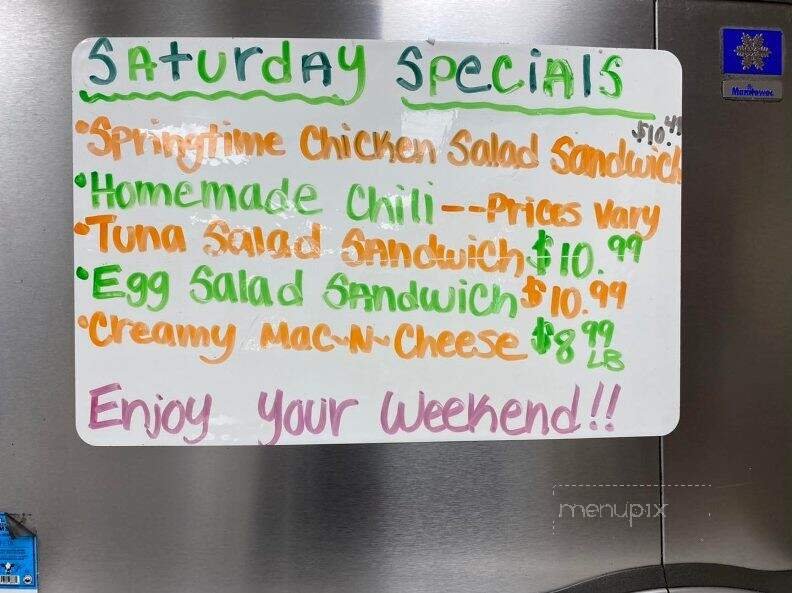 Saturday Specials
•Springtime Chicken Salad Sandwich $10.49
•Homemade Chili--Prices Vary
•Tuna Salad Sandwich $10.99
•Egg Salad Sandwich $10.99
•Creamy Mac~N~Cheese $8.99 LB
Enjoy your weekend!!
Manitowoc
menupix